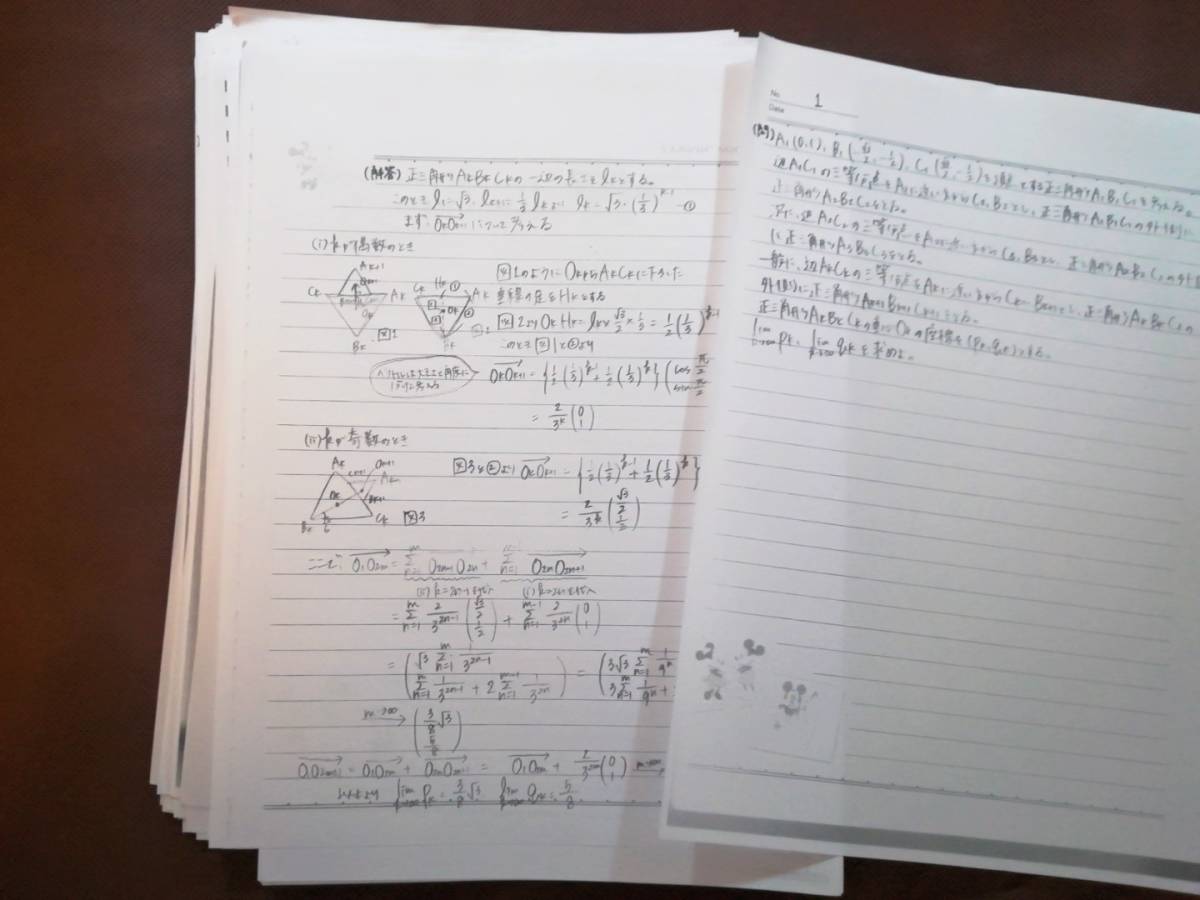 (解答) 正三角形AkBkCkの一辺の長さをlkとする。
このとき l1=√3, lk+1=1/3 lk より lk=√3・(1/3)^(k-1) ①
まず、OkOk+1について考える
(i) kが偶数のとき
Ak+1
Ck Ak
Ok
Bk 図1
Ck Hk ①
Ak
Ok
図1のようにOkからAkCkに下ろした
垂線の足をHkとする
図2よりOkHk=lk×√3/2×1/3=1/2(1/3)^(k-1)
このとき図1と②より
ベクトルは大きさと角度に
分けて考える
OkOk+1={1/2(1/3)^(k-1)+1/2(1/3)^k}(cos π/2
sin π/2
=2/3^k (0
1)
(ii) kが奇数のとき
Ak
Ok+1
Ok
Bk
Ck 図3
図3と②より OkOk+1={1/2(1/3)^(k-1)+1/2(1/3)^k}
=2/3^k (√3/2
1/2)
ここで、O1O2m=Σ[n=1,m] O2n-1O2n+Σ[n=1,m-1] O2nO2n+1
(ii) k=2n-1を代入 (i) k=2nを代入
=Σ[n=1,m] 2/3^(2n-1) (√3/2
1/2)+Σ[n=1,m-1] 2/3^(2n) (0
1)
=(√3 Σ[n=1,m] 1/3^(2n-1)
Σ[n=1,m] 1/3^(2n-1)+2Σ[n=1,m-1] 1/3^(2n))=(3√3 Σ[n=1,m] 1/9^n
3Σ[n=1,m] 1/9^n+
m→∞ (3/8 √3
5/8)
O1O2m+1=O1O2m+O2mO2m+1=O1O2m+2/3^(2m) (0
1) m→∞
以上より lim k→∞ Pk=3/8 √3 lim k→∞ qk=5/8
No. 1
Date
A1(0,1), B1(-√3/2,-1/2), C1(√3/2,-1/2)を頂点とする正三角形A1B1C1を考える。
辺A1C1の三等分点をA1に近い方からC2, B2とし、正三角形A1B1C1の外側に
正三角形A2B2C2をとる。
次に、辺A2C2の三等分点をA2に近い方からC3, B3とし、正三角形A2B2C2の外側
に正三角形A3B3C3をとる。
一般に、辺AkCkの三等分点をAkに近い方からCk+1, Bk+1とし、正三角形AkBkCkの
外側に、正三角形Ak+1Bk+1Ck+1をとる。
正三角形AkBkCkの重心Okの座標を(Pk, qk)とする。
lim k→∞ Pk, lim k→∞ qkを求めよ。